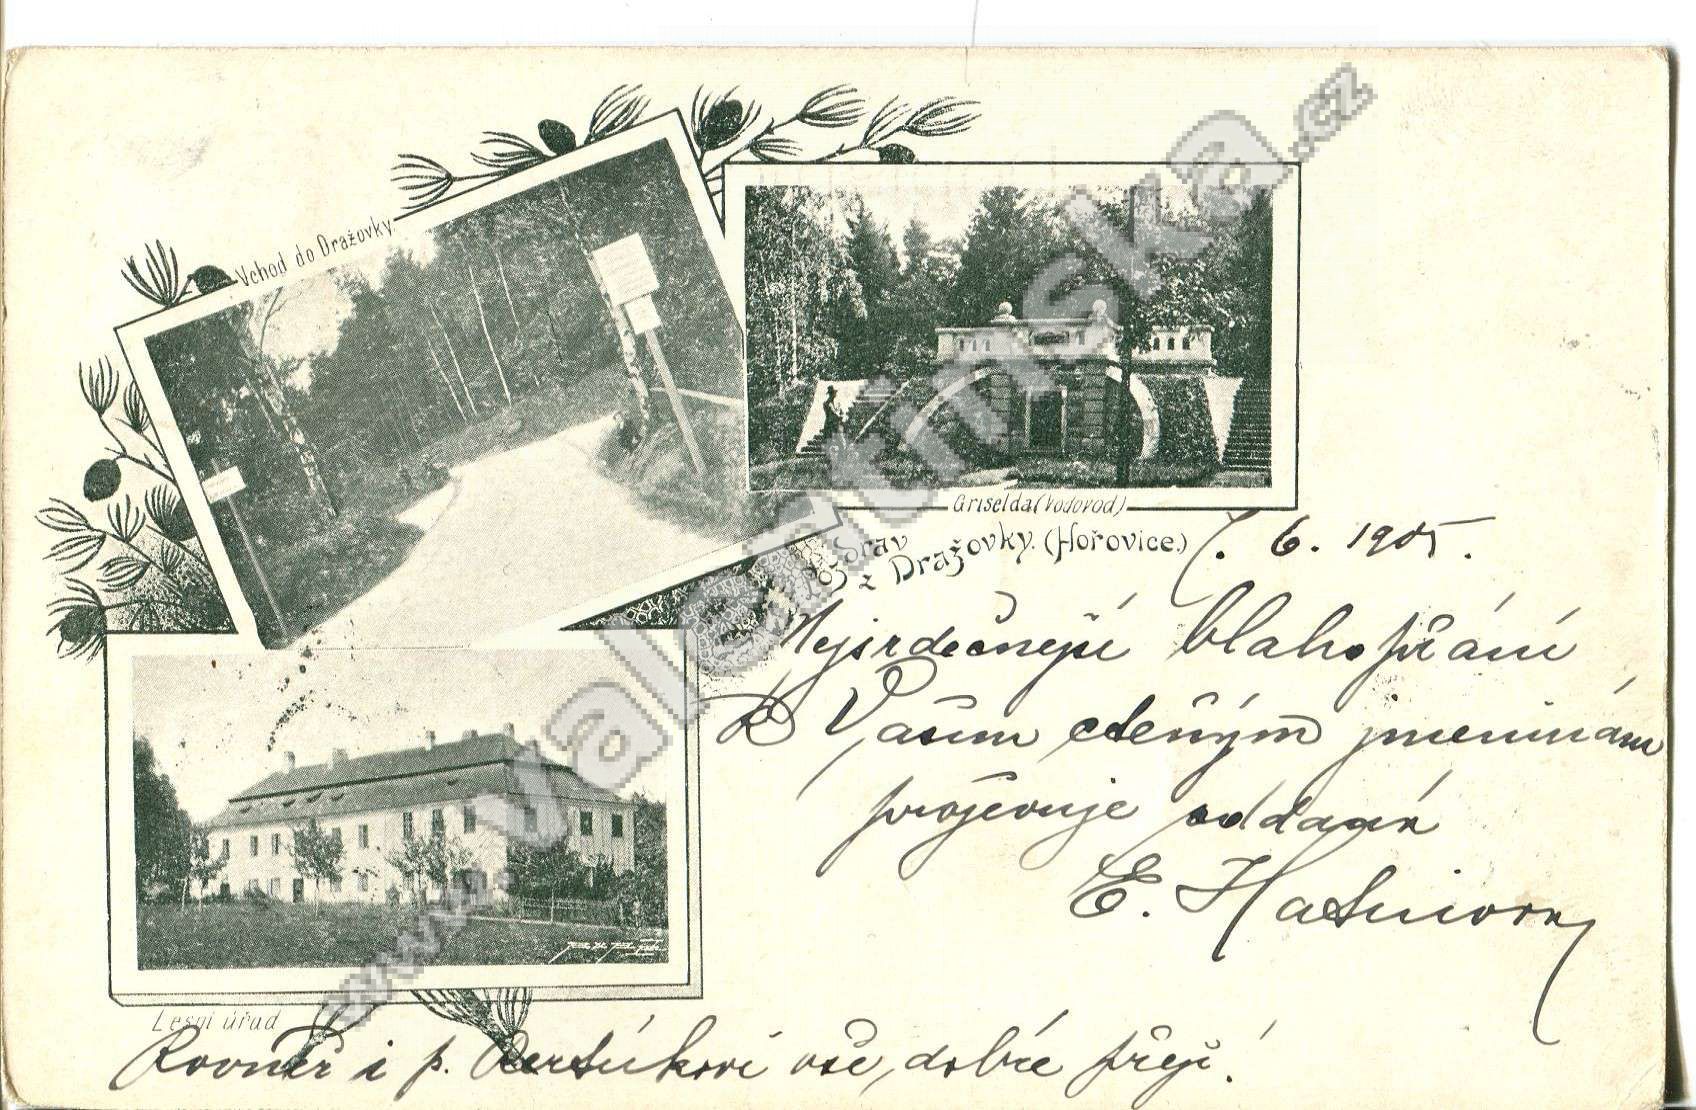 Vchod do Dražovky.
Griselda (Vodovod)
Pozdrav
z Dražovky. (Hořovice.)
7. 6. 1905.
Nejsrdečnější blahopřání
k Vašim cteným jmeninám
projevuje oddaný
E.
Lesní úřad
Rovněž i p. vše dobré přeji!
www.valentinska.cz